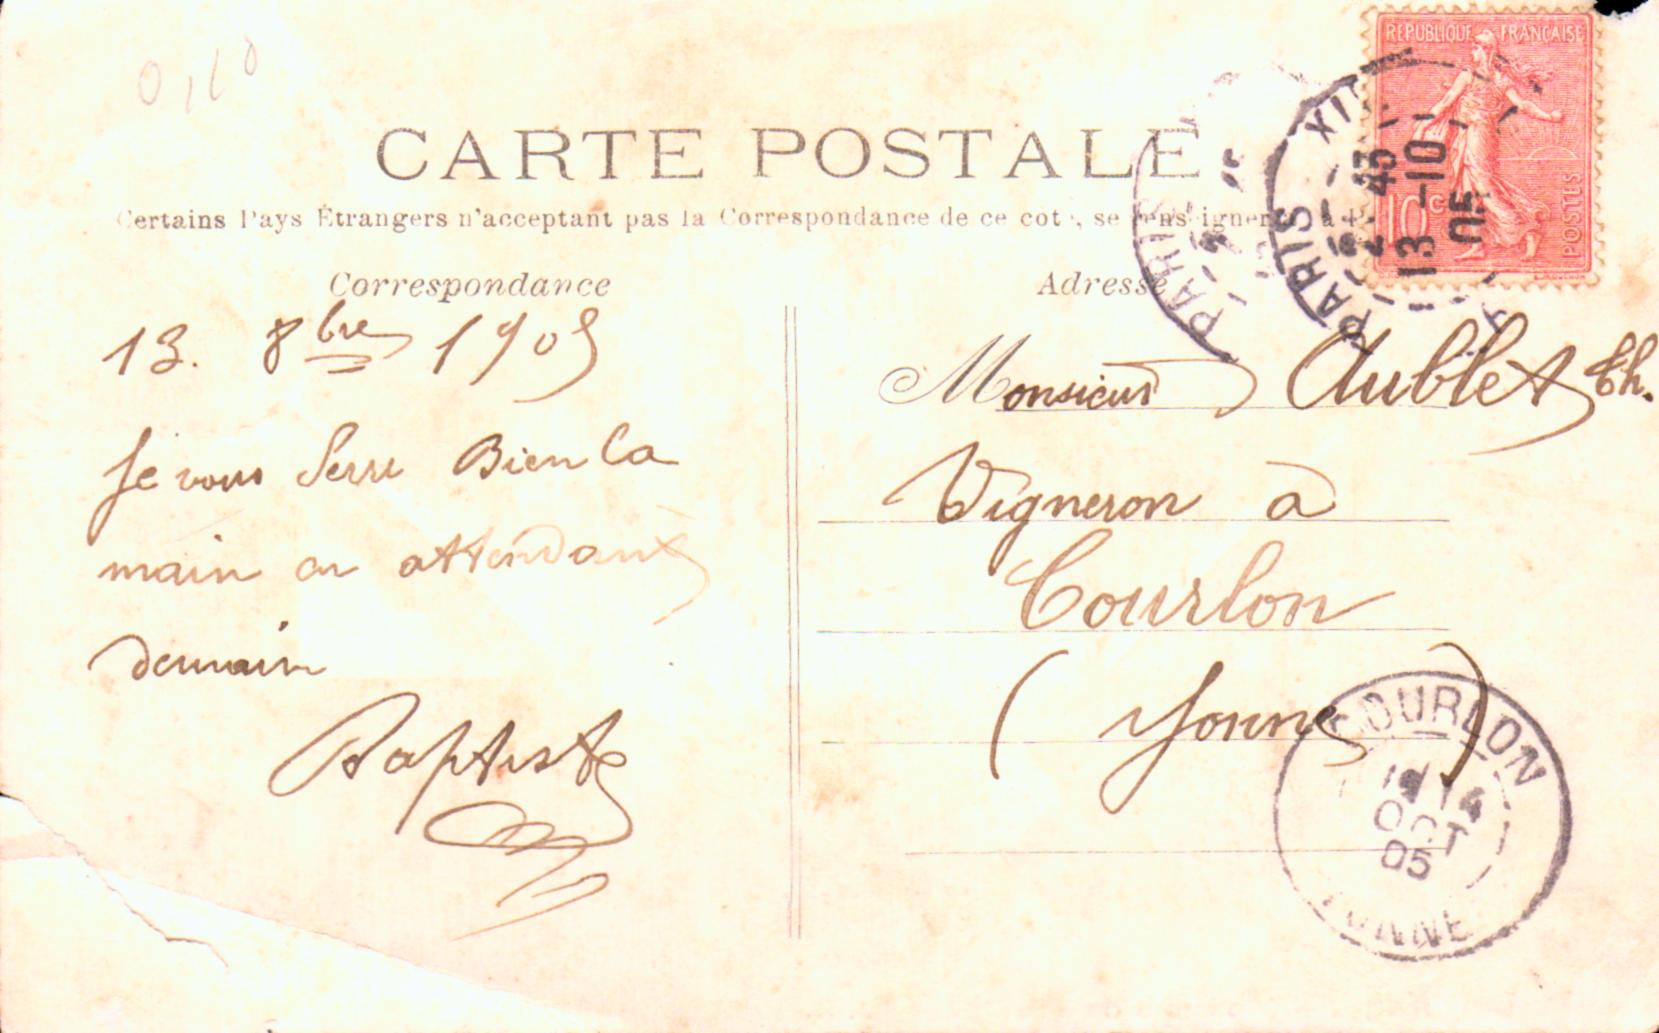 0,10
RÉPUBLIQUE FRANÇAISE
10 c
POSTES
CARTE POSTALE
Certains Pays Étrangers n'acceptant pas la Correspondance de ce coté, se renseigner à
PARIS
PARIS XI
2 45
13 -10
05
Correspondance
Adresse
13. 8bre 1905
Je vous Serre Bien la
main en attendant
demain
Baptiste
Monsieur Aublet Th.
Vigneron à
Courlon
(Yonne)
COURLON
14
OCT
05
YONNE